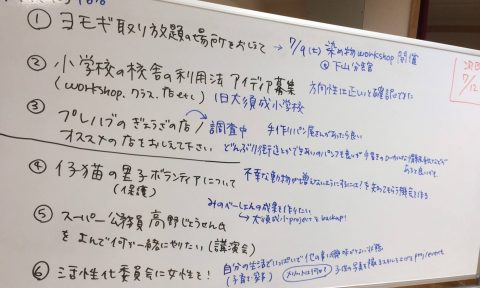 ① ヨモギ取り放題の場所をおしえて → 7/9(土)染め物workshop 開催
@ 下山分宮
② 小学校の校舎の利用法 アイディア募集 方向性は正しいと確認できた
(workshop、クラス、店etc) 旧大須成小学校
③ プレハブのぎょうざの店 / 調査中 手作りパン屋さんがあったら良い
オススメの店をおしえて下さい
④ 仔猫の里子ボランティアについて 不幸な動物が増えないようにするには?
(保護)
みのべーしょんの成果を作りたい
⑤ スーパー公務員 高野じょうせん氏 → 大須成小projectをbackup!
をよんで何か一緒にやりたい(講演会)
⑥ 活性化委員会に女性を! 自分の生活でいっぱいで他の事に興味がない状態
(子育て、家事) メリットは何か?
次回
7/12